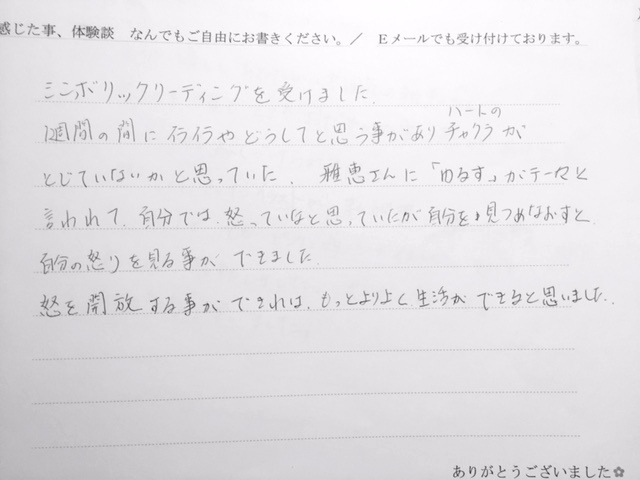 感じた事、体験談　なんでもご自由にお書きください。／　Eメールでも受け付けております。
シンボリックリーディングを受けました.
1週間の間にイライラやどうしてと思う事がありハートのチャクラが
とじていないかと思っていた. 雅恵さんに「ゆるす」がテーマと
言われて, 自分では, 怒っていなと思っていたが自分を見つめなおすと
自分の怒りを見る事ができました.
怒を開放する事ができれば, もっとよりよく生活ができると思いました.
ありがとうございました✿